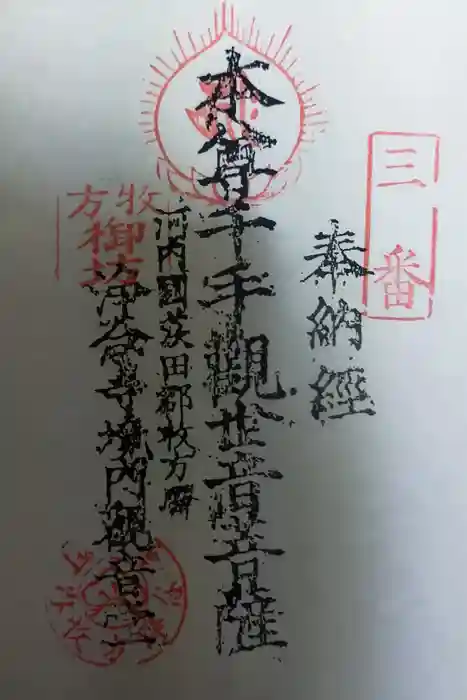 三番
奉納經
本尊千手觀世音菩薩
河内國茨田郡枚方驛
浄念寺境内觀音堂
枚方
御坊